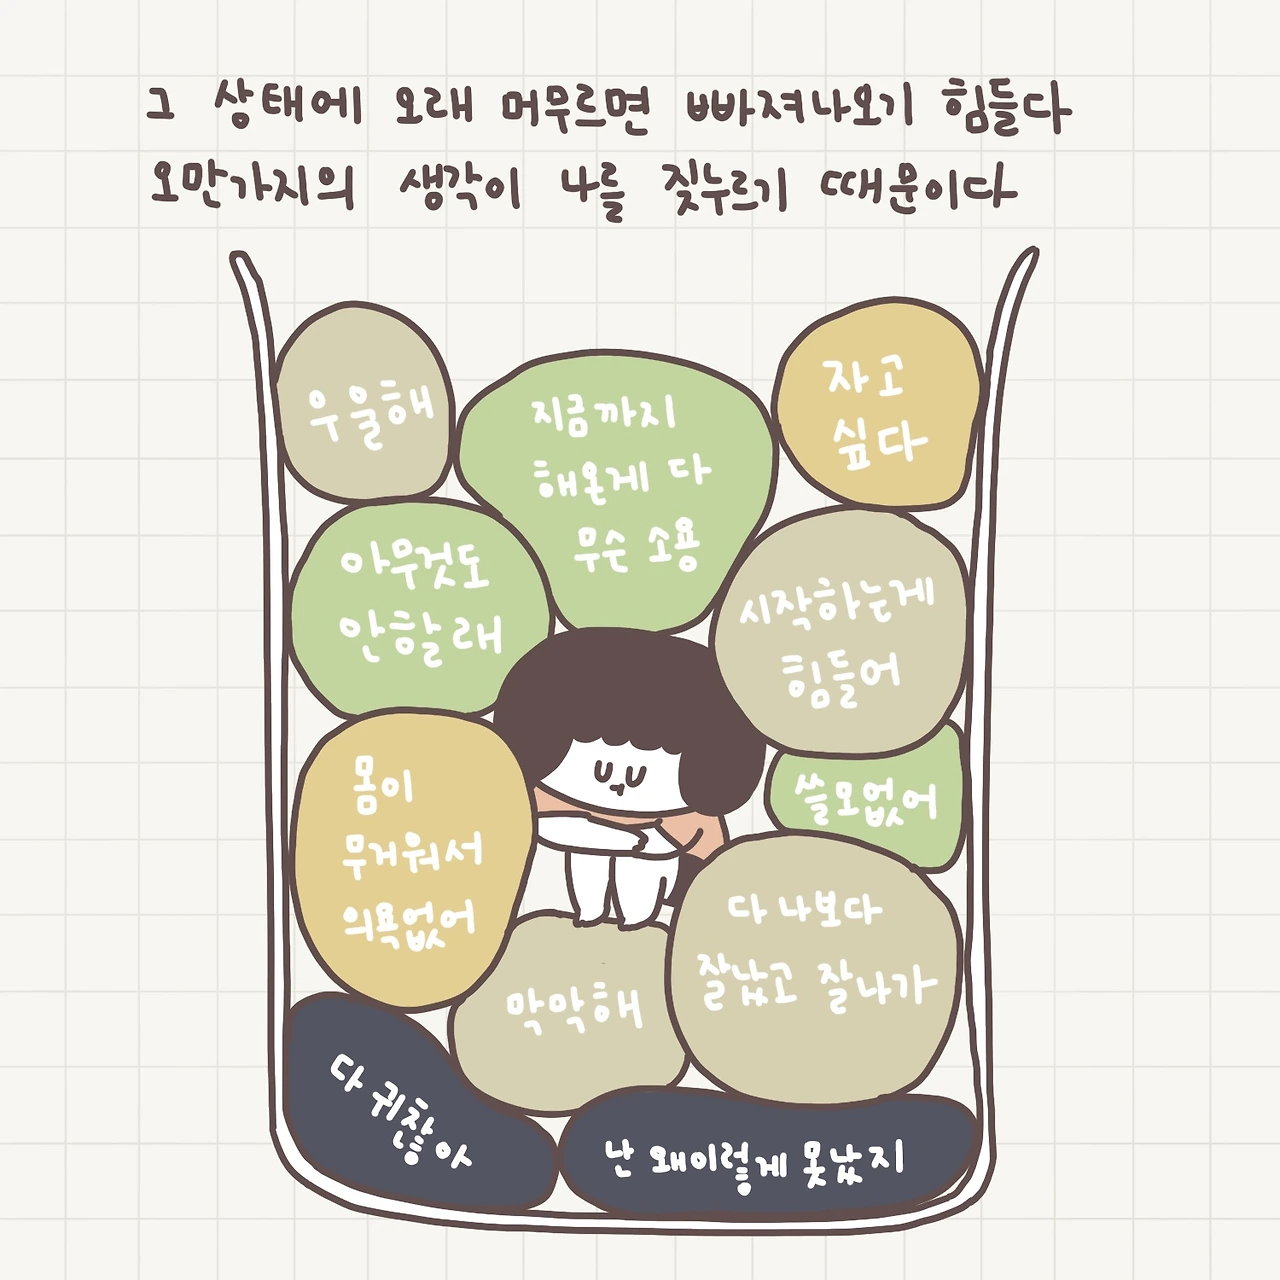 그 상태에 오래 머무르면 빠져나오기 힘들다
오만가지의 생각이 나를 짓누르기 때문이다
우울해
지금까지
해온게 다
무슨 소용
자고
싶다
아무것도
안할래
시작하는게
힘들어
몸이
무거워서
의욕없어
쓸모없어
다 나보다
잘났고 잘나가
막막해
다 귀찮아
난 왜이렇게 못났지